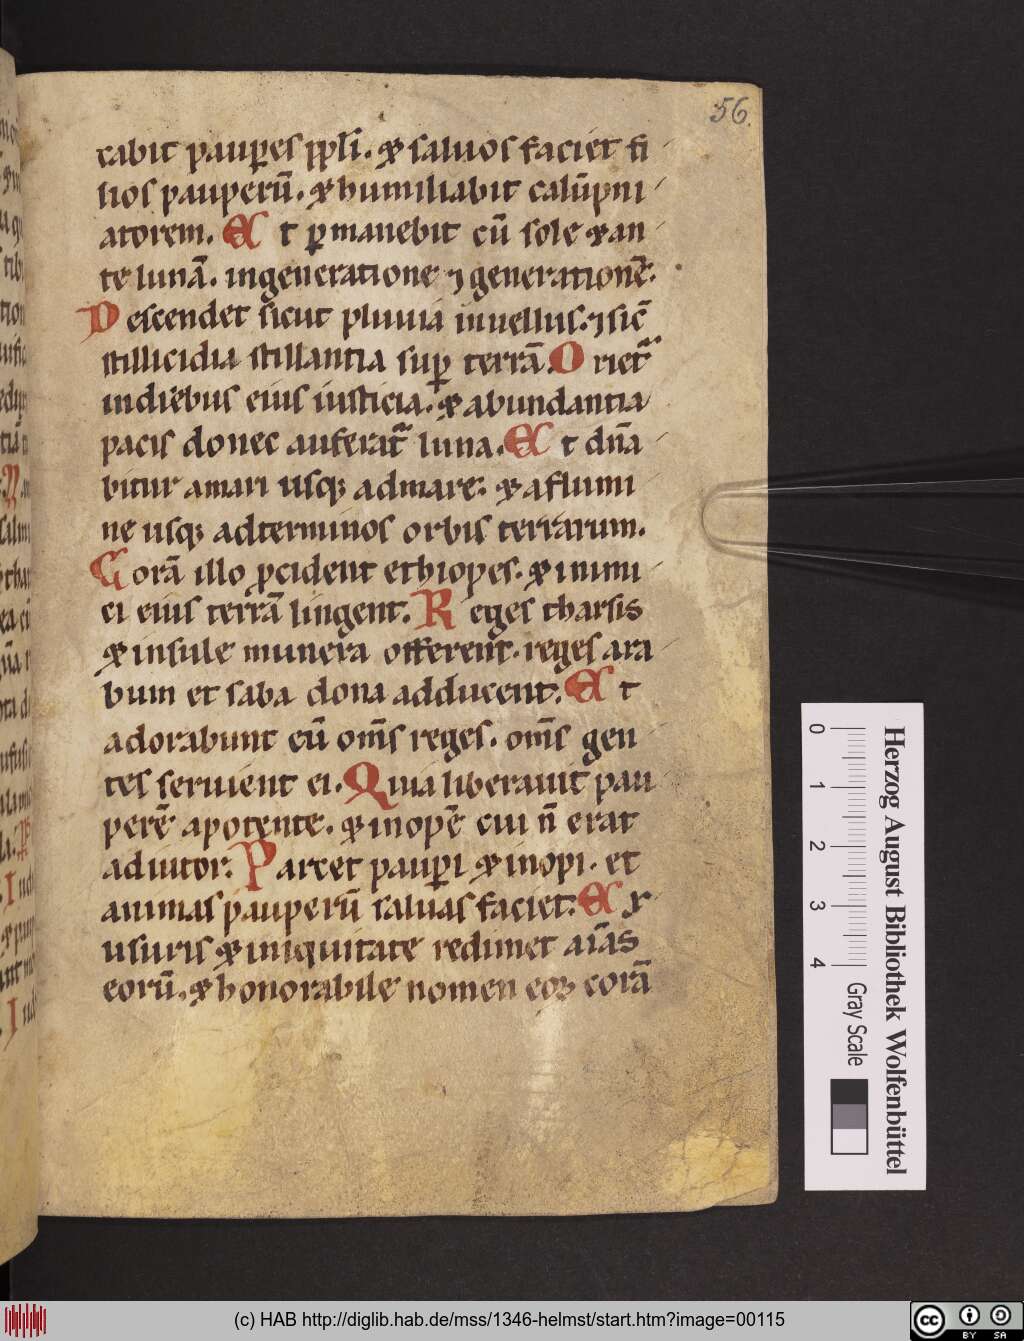 56.
cabit paup̱es pp̄li. & saluos faciet fi
lios pauperū. & humiliabit calūpni
atorem. Et p̱manebit cū sole & an
te lunā. ingeneratione ⁊ generationē.
Descendet sicut pluuia inuellus. ⁊ sic̄
stillicidia stillantia sup̱ terrā. Oriet᷑
indiebus eius iusticia. & abundantia
pacis donec auferat᷑ luna. Et dn̄a
bitur amari usq; admare. & aflumi
ne usq; adterminos orbis terrarum.
Corā illo p̱cident ethiopes. & inimi
ci eius terrā lingent. Reges tharsis
& insule munera offerent. reges ara
bum et saba dona adducent. Et
adorabunt eū om̄s reges. om̄s gen
tes seruient ei. Quia liberauit pau
perē apotente. & inopē cui n̄ erat
adiutor. Parcet paup̱i & inopi. et
animas pauperū saluas faciet. Ex
usuris & iniquitate redimet aīas
eorū. & honorabile nomen eoꝝ corā
0 1 2 3 4
Gray Scale
Herzog August Bibliothek Wolfenbüttel
(c) HAB http://diglib.hab.de/mss/1346-helmst/start.htm?image=00115
cc BY SA